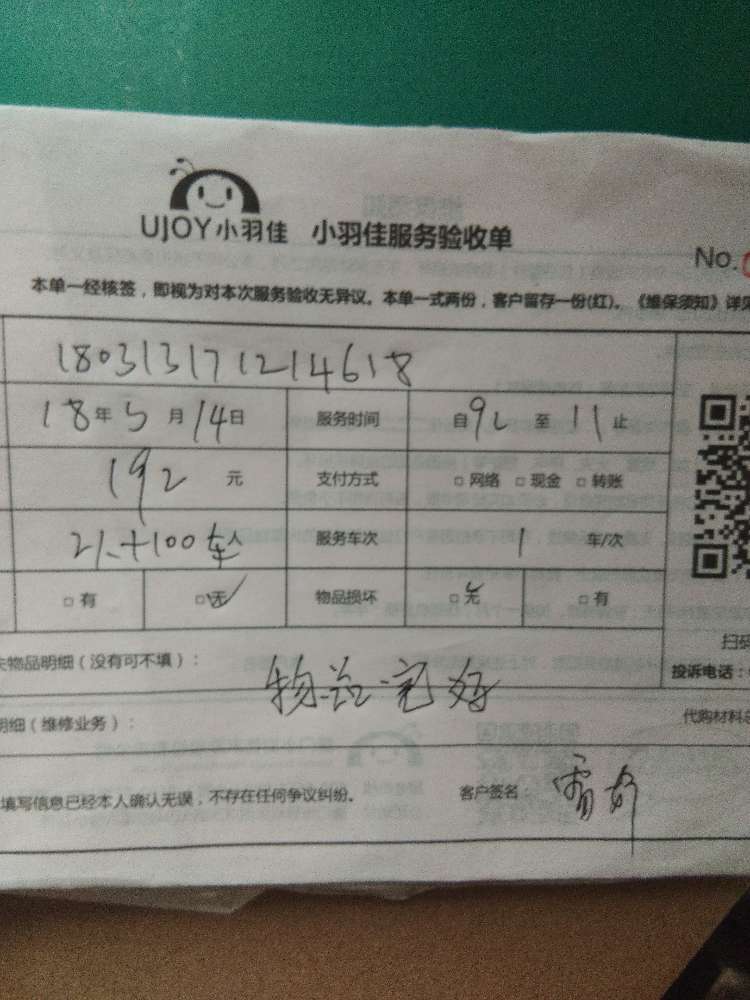 UJOY小羽佳 小羽佳服务验收单
No.
本单一经核签，即视为对本次服务验收无异议。本单一式两份，客户留存一份(红)。《维保须知》详见
180313171214618
18年5月14日 服务时间 自9 至11止
192元 支付方式 □网络 □现金 □转账
人 服务车次 1 车/次
□有 □无 物品损坏 □无 □有
物品明细（没有可不填）： 物品完好
扫码
投诉电话：
明细（维修业务）： 代购材料总
填写信息已经本人确认无误，不存在任何争议纠纷。 客户签名：